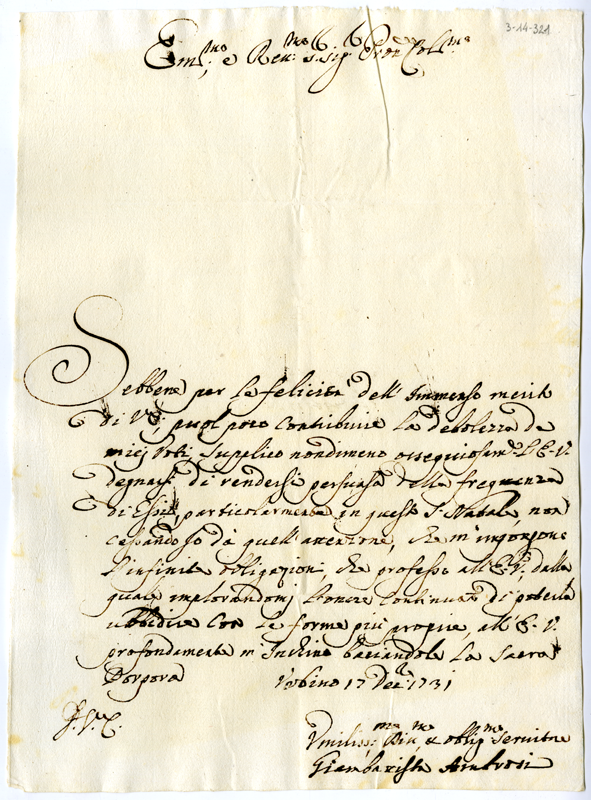 3-14-321
Em.mo e Reu.mo Sig.r Pron Col.mo
Sebbene per la felicità dell' Immenso merito
di V.E. puol poco contribuire la debolezza de
miej Voti, Supplico nondimeno ossequiosam.te l'E.V.
degnarsi di rendersi persuasa della frequenza
di Essi, particolarmente in questo S. Natale, non
cessando io dà quell' attenzione, che m' ingongono
l'infinite obligazioni, che professo all' E.V., dalla
quale implorandomj l'onore continuato di poterla
ubbidire con le forme più proprie, all' E.V.
profondamente m' Inchino baciandole La Sacra
Porpora Vrbino 17 Dec.re 1731
Vmiliss.mo Diu.mo & obblig.mo Seruitore
Giambatista Ambrosi